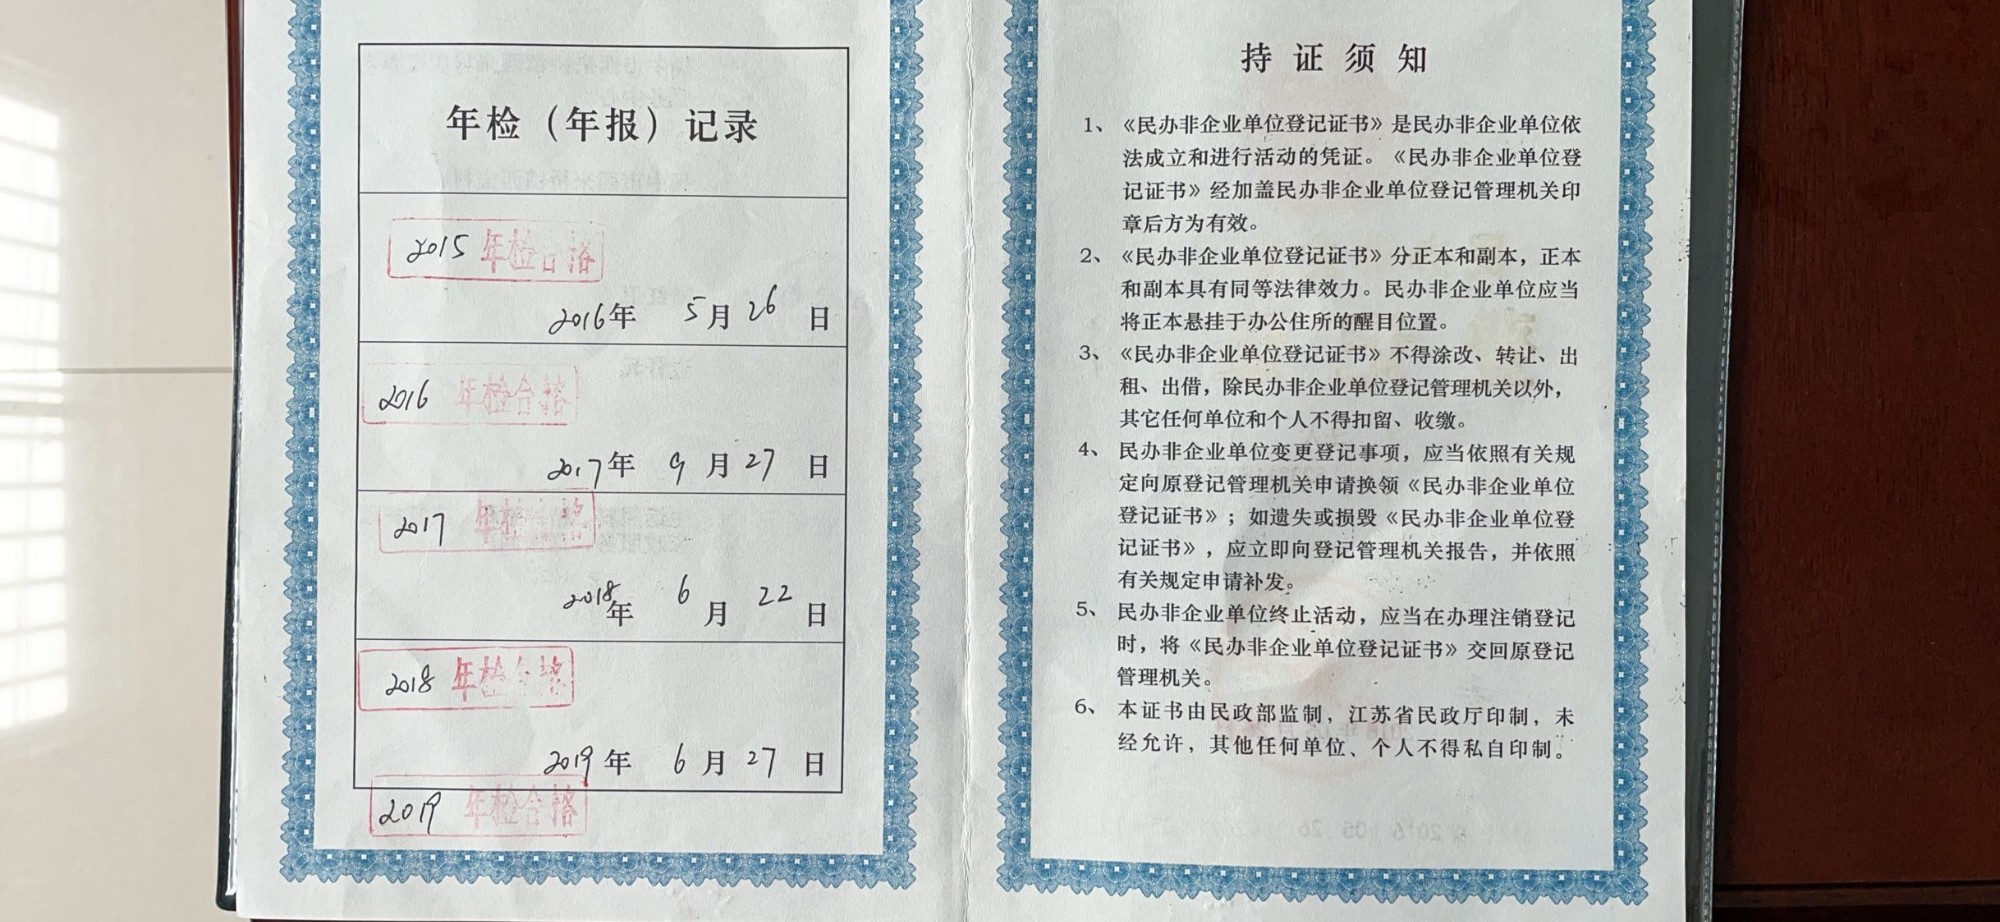 年检（年报）记录
2015 年检合格
2016年 5月26日
2016 年检合格
2017年 9月27日
2017 年检 格
2018年 6月22日
2018 年检合格
2019年 6月27日
2019 年检合格
持证须知
1、《民办非企业单位登记证书》是民办非企业单位依
法成立和进行活动的凭证。《民办非企业单位登
记证书》经加盖民办非企业单位登记管理机关印
章后方为有效。
2、《民办非企业单位登记证书》分正本和副本，正本
和副本具有同等法律效力。民办非企业单位应当
将正本悬挂于办公住所的醒目位置。
3、《民办非企业单位登记证书》不得涂改、转让、出
租、出借，除民办非企业单位登记管理机关以外，
其它任何单位和个人不得扣留、收缴。
4、民办非企业单位变更登记事项，应当依照有关规
定向原登记管理机关申请换领《民办非企业单位
登记证书》；如遗失或损毁《民办非企业单位登
记证书》，应立即向登记管理机关报告，并依照
有关规定申请补发。
5、民办非企业单位终止活动，应当在办理注销登记
时，将《民办非企业单位登记证书》交回原登记
管理机关。
6、本证书由民政部监制，江苏省民政厅印制，未
经允许，其他任何单位、个人不得私自印制。